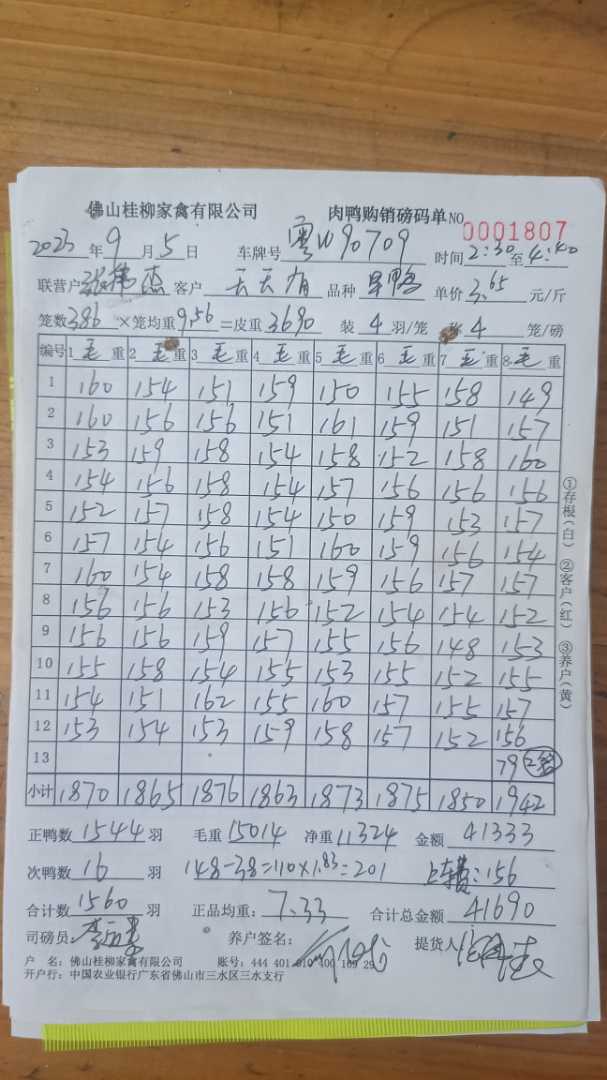 佛山桂柳家禽有限公司 肉鸭购销磅码单 NO 0001807
2023年9月5日 车牌号 粤W90709 时间2:30至4:40
联营户 张伟杰 客户 天天有 品种 旱鸭 单价3.65元/斤
笼数386×笼均重9.56=皮重3690 装4羽/笼 4笼/磅
编号 1毛重 2毛重 3毛重 4毛重 5毛重 6毛重 7毛重 8毛重
1 160 154 151 159 150 155 158 149
2 160 156 156 151 161 159 151 157
3 153 159 158 154 158 152 158 160
4 154 156 158 154 157 156 156 156
5 152 157 158 154 150 159 153 157
6 157 154 156 151 160 159 156 154
7 160 154 158 158 159 156 157 157
8 156 156 153 156 152 154 154 152
9 156 156 159 157 155 156 148 153
10 155 158 154 155 153 155 152 155
11 154 151 162 155 160 157 155 157
12 153 154 153 159 158 157 152 156
13 79 2笼
小计 1870 1865 1876 1863 1873 1875 1850 1942
正鸭数1544羽 毛重15014 净重11324 金额41333
次鸭数16羽 148-38=110×1.83=201 上车费:156
合计数1560羽 正品均重:7.33 合计总金额41690
司磅员: 养户签名: 提货人
户 名:佛山桂柳家禽有限公司 账号:444 401 010 400 169 29
开户行:中国农业银行广东省佛山市三水区三水支行
①存根(白) ②客户(红) ③养户(黄)